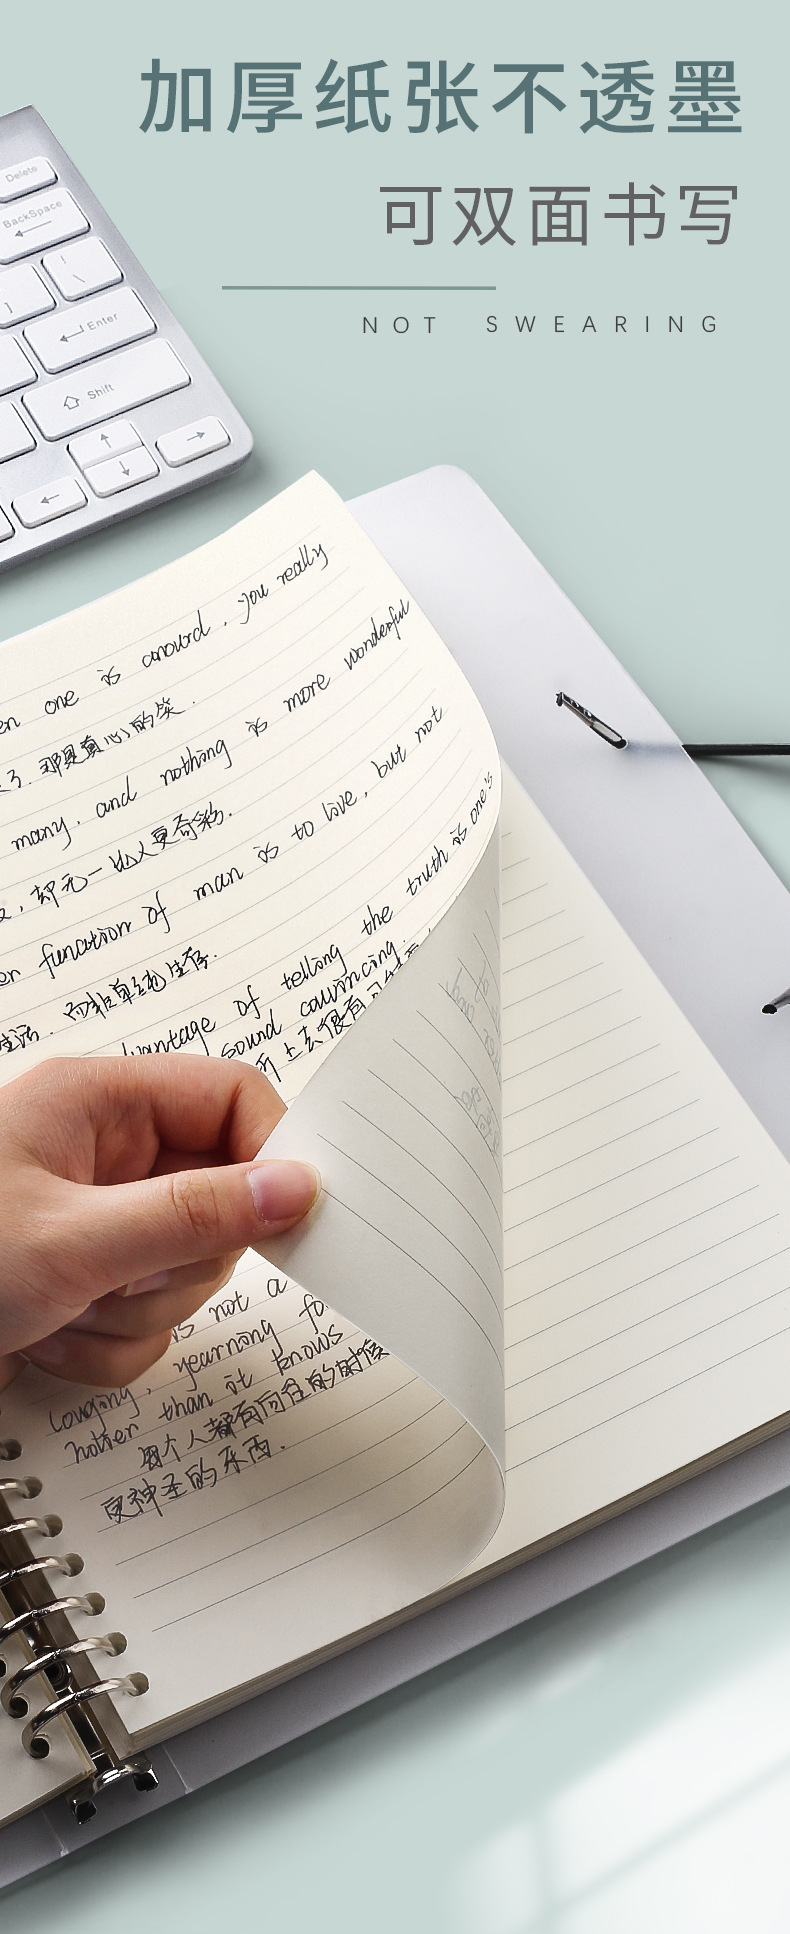 加厚纸张不透墨
可双面书写
NOT SWEARING
Delete
BackSpace
Enter
Shift
one is anourd, you really
那是真心的笑.
many, and nothing is more wonderful
却无一比人更奇彩.
function of man is to live, but not
而非单纯生存.
of telling the truth is one's
sound convincing.
听上去很有
is not a
Longing, yearning
hotier than it knows
每个人都有向往的时候
更神圣的东西.